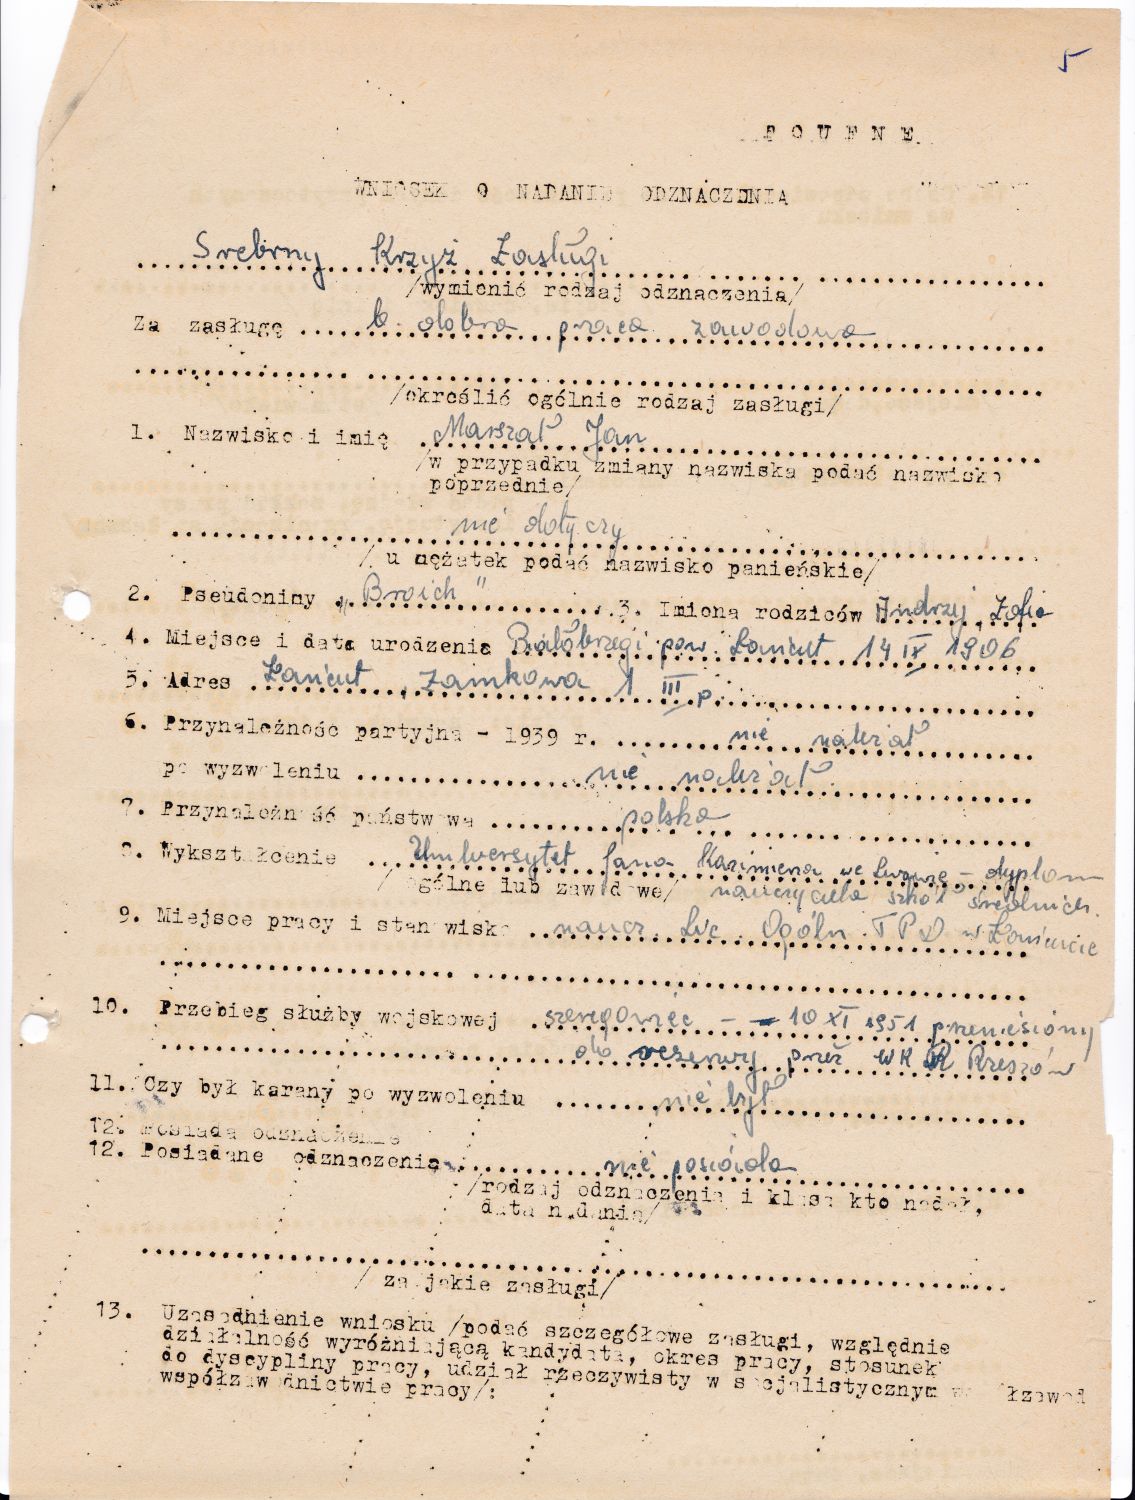 5
P O U F N E
WNIOSEK O NADANIE ODZNACZENIA
Srebrny Krzyż Zasługi
/wymienić rodzaj odznaczenia/
Za zasługę b. dobra praca zawodowa
/określić ogólnie rodzaj zasługi/
1. Nazwisko i imię Marszał Jan
/w przypadku zmiany nazwiska podać nazwisko
poprzednie/
nie dotyczy
/ u mężatek podać nazwisko panieńskie/
2. Pseudonimy „Broich" 3. Imiona rodziców Andrzej, Zofia
4. Miejsce i data urodzenia Białobrzegi pow. Łańcut 14 IX 1906
5. Adres Łańcut, Zamkowa 1 III p.
6. Przynależność partyjna - 1939 r. nie należał
po wyzwoleniu nie należał
7. Przynależność państwowa polska
8. Wykształcenie Uniwersytet Jana Kazimierza we Lwowie - dyplom
/ ogólne lub zawodowe/ nauczyciela szkół średnich.
9. Miejsce pracy i stanowisko naucz. Lic. Ogóln. T P D w Łańcucie
10. Przebieg służby wojskowej szeregowiec - - 10 XI 1951 przeniesiony
do rezerwy przez WKR Rzeszów
11. Czy był karany po wyzwoleniu nie był
12. Posiada odznaczenie
12. Posiadane odznaczenia nie posiada
/rodzaj odznaczenia i klasa kto nadał,
data nadania/
/ za jakie zasługi/
13. Uzasadnienie wniosku /podać szczegółowe zasługi, względnie
działalność wyróżniającą kandydata, okres pracy, stosunek
do dyscypliny pracy, udział rzeczywisty w socjalistycznym
współzawodnictwie pracy/: